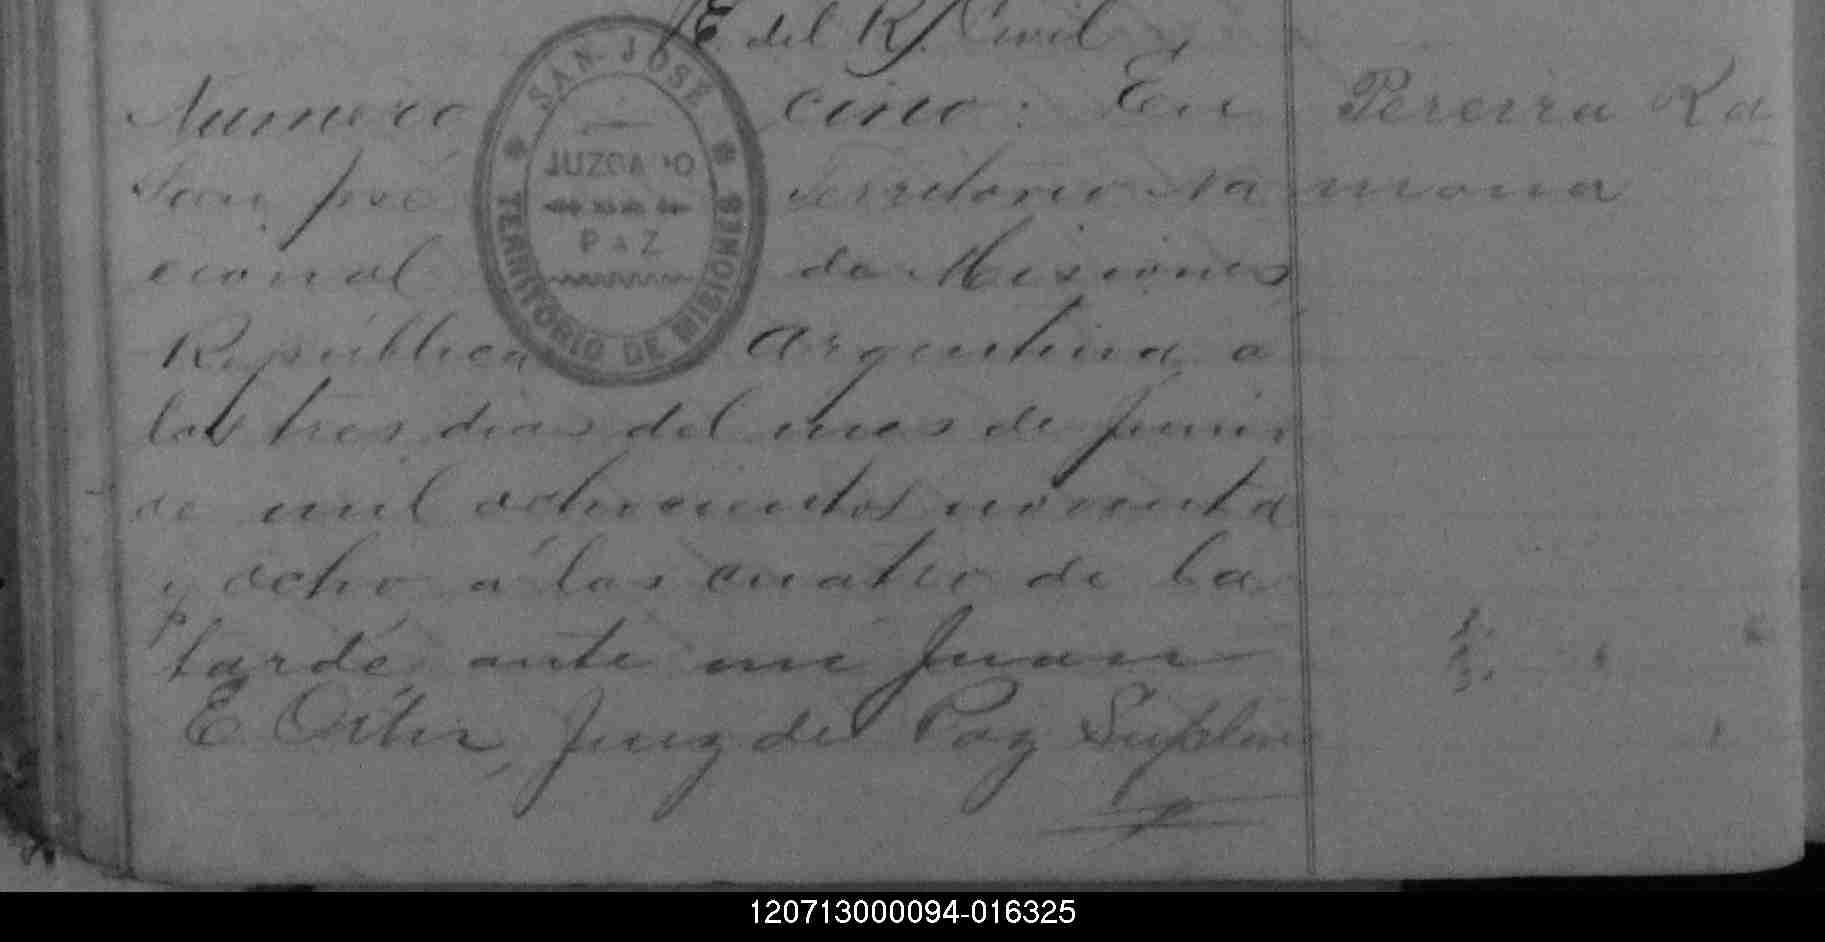 E. del R. Civil
Numero cinco: En
San José territorio Na
cional de Misiones
República Argentina a
los tres dias del mes de Junio
de mil ochocientos noventa
y ocho a las cuatro de la
tarde, ante mi Juan
E. Juez de Paz Suplente
Pereira Ra
mona
SAN JOSÉ
JUZGADO
PAZ
TERRITORIO DE MISIONES
120713000094-016325